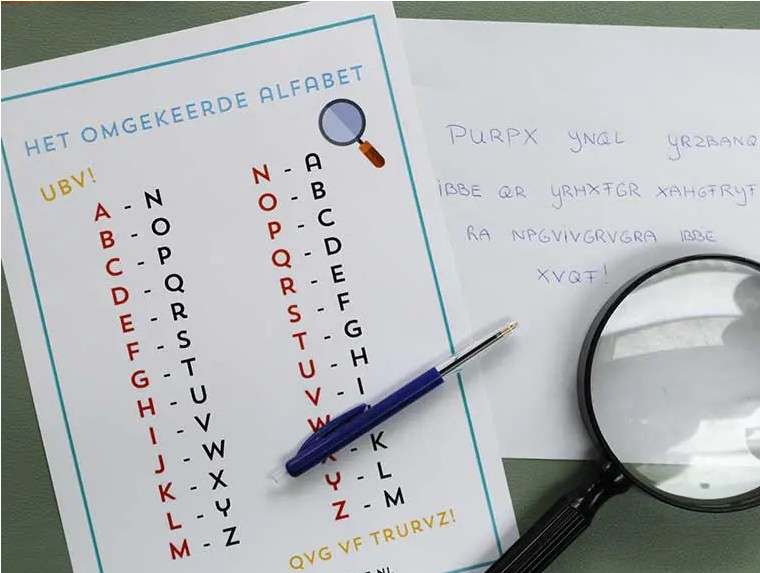 HET OMGEKEERDE ALFABET
UBV!
A - N
B - O
C - P
D - Q
E - R
F - S
G - T
H - U
I - V
J - W
K - X
L - Y
M - Z
N - A
O - B
P - C
Q - D
R - E
S - F
T - G
U - H
V - I
W
- K
Y - L
Z - M
QVG VF TRURVZ!
PURPX YNQL YRZBANQ
IBBE QR YRHXFGR XAHGFRYF
RA NPGVIVGRVGRA IBBE
XVQF!